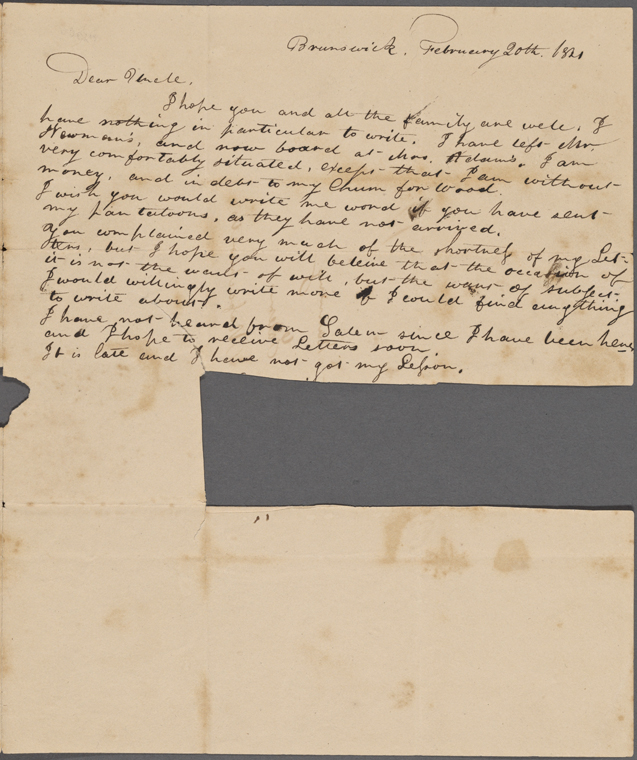 Brunswick, February 20th. 1821
Dear Uncle,
I hope you and all the family are well. I
have nothing in particular to write. I have left Mr.
Newman's, and now board at Mrs. Adams's. I am
very comfortably situated, except that I am without
money, and in debt to my Chum for wood.
I wish you would write me word if you have sent
my pantaloons, as they have not arrived.
You complained very much of the shortness of my Let-
ters, but I hope you will beleive that the occasion of
it is not the want of will, but the want of subject.
I would willingly write more if I could find anything
to write about.
I have not heard from Salem since I have been here
and I hope to receive Letters soon
It is late and I have not got my Lesson.